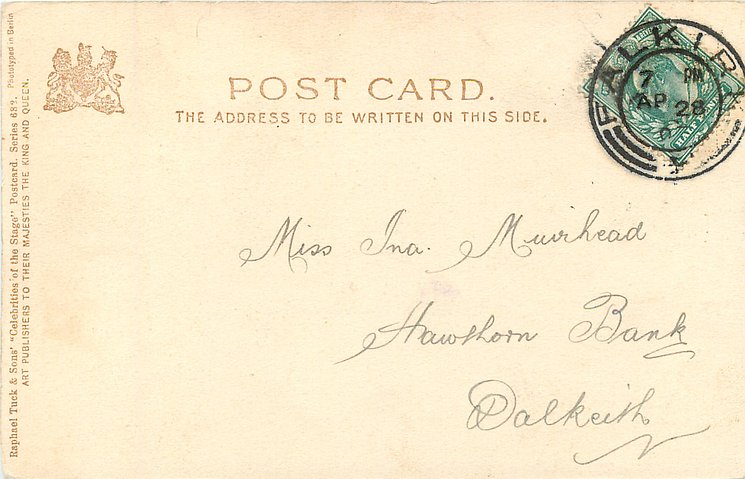 POST CARD.
THE ADDRESS TO BE WRITTEN ON THIS SIDE.
FALKIRK
7 PM
AP 28
HALF
Miss Ina. Muirhead
Hawthorn Bank
Dalkeith
Raphael Tuck & Sons' "Celebrities of the Stage" Postcard. Series 682. Phototyped in Berlin
ART PUBLISHERS TO THEIR MAJESTIES THE KING AND QUEEN.